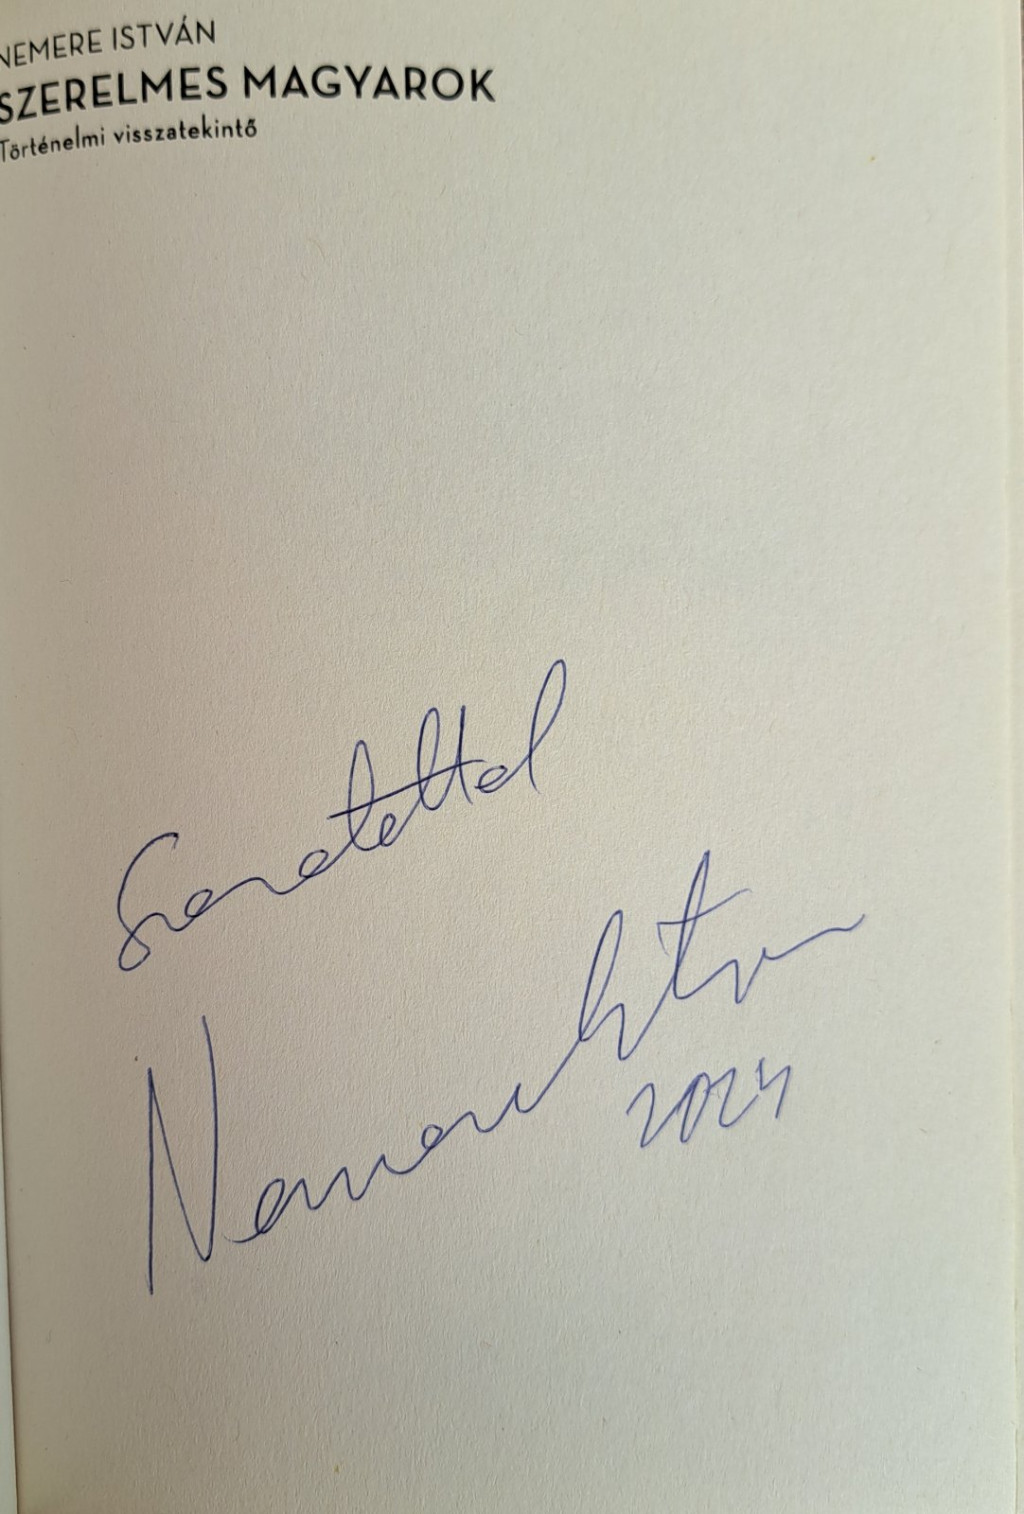 NEMERE ISTVÁN
SZERELMES MAGYAROK
Történelmi visszatekintő
Szeretettel
Nemere István
2024